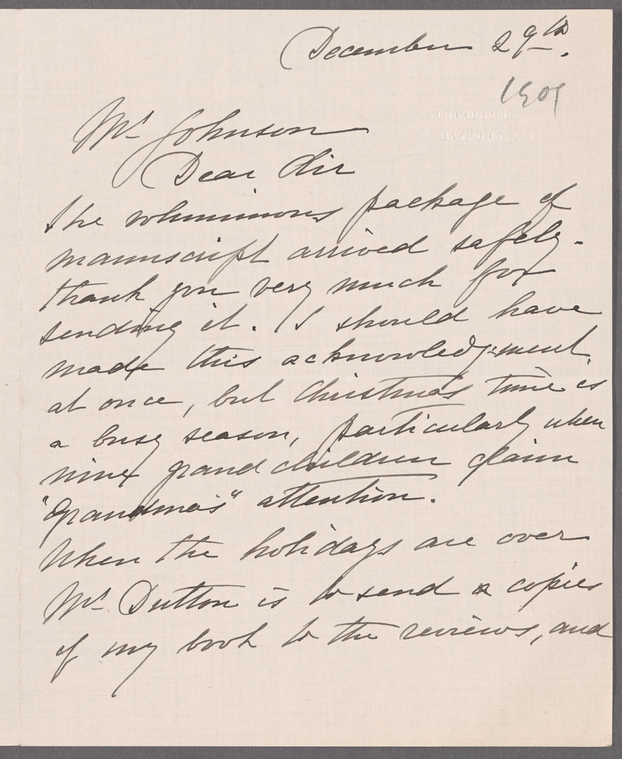 December 29th.
1909
Mr Johnson
Dear Sir
The voluminous package of
manuscript arrived safely.
Thank you very much for
sending it. I should have
made this acknowledgment,
at once, but Christmas time is
a busy season, particularly when
nine grandchildren claim
"Grandma's" attention.
When the holidays are over
Mr. Dutton is to send copies
of my book to the reviews, and